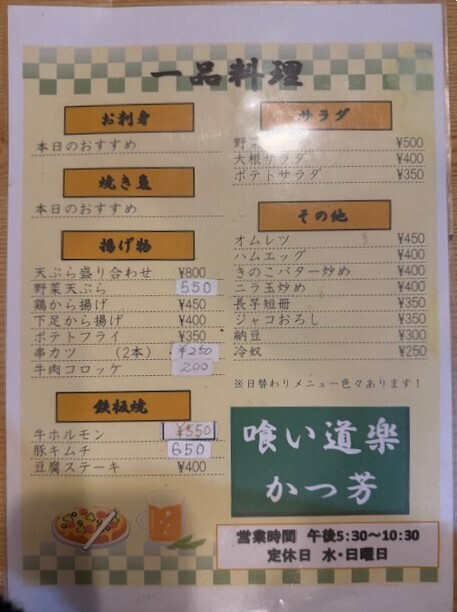 一品料理
お刺身
本日のおすすめ
焼き魚
本日のおすすめ
揚げ物
天ぷら盛り合わせ ¥800
野菜天ぷら 550
鶏から揚げ ¥450
下足から揚げ ¥400
ポテトフライ ¥350
串カツ (2本) ¥250
牛肉コロッケ 200
鉄板焼
牛ホルモン ¥550
豚キムチ 650
豆腐ステーキ ¥400
サラダ
野菜 ¥500
大根サラダ ¥400
ポテトサラダ ¥350
その他
オムレツ ¥450
ハムエッグ ¥400
きのこバター炒め ¥400
ニラ玉炒め ¥400
長芋短冊 ¥350
ジャコおろし ¥350
納豆 ¥300
冷奴 ¥250
※日替わりメニュー色々あります!
喰い道楽
かつ芳
営業時間 午後5:30~10:30
定休日 水・日曜日